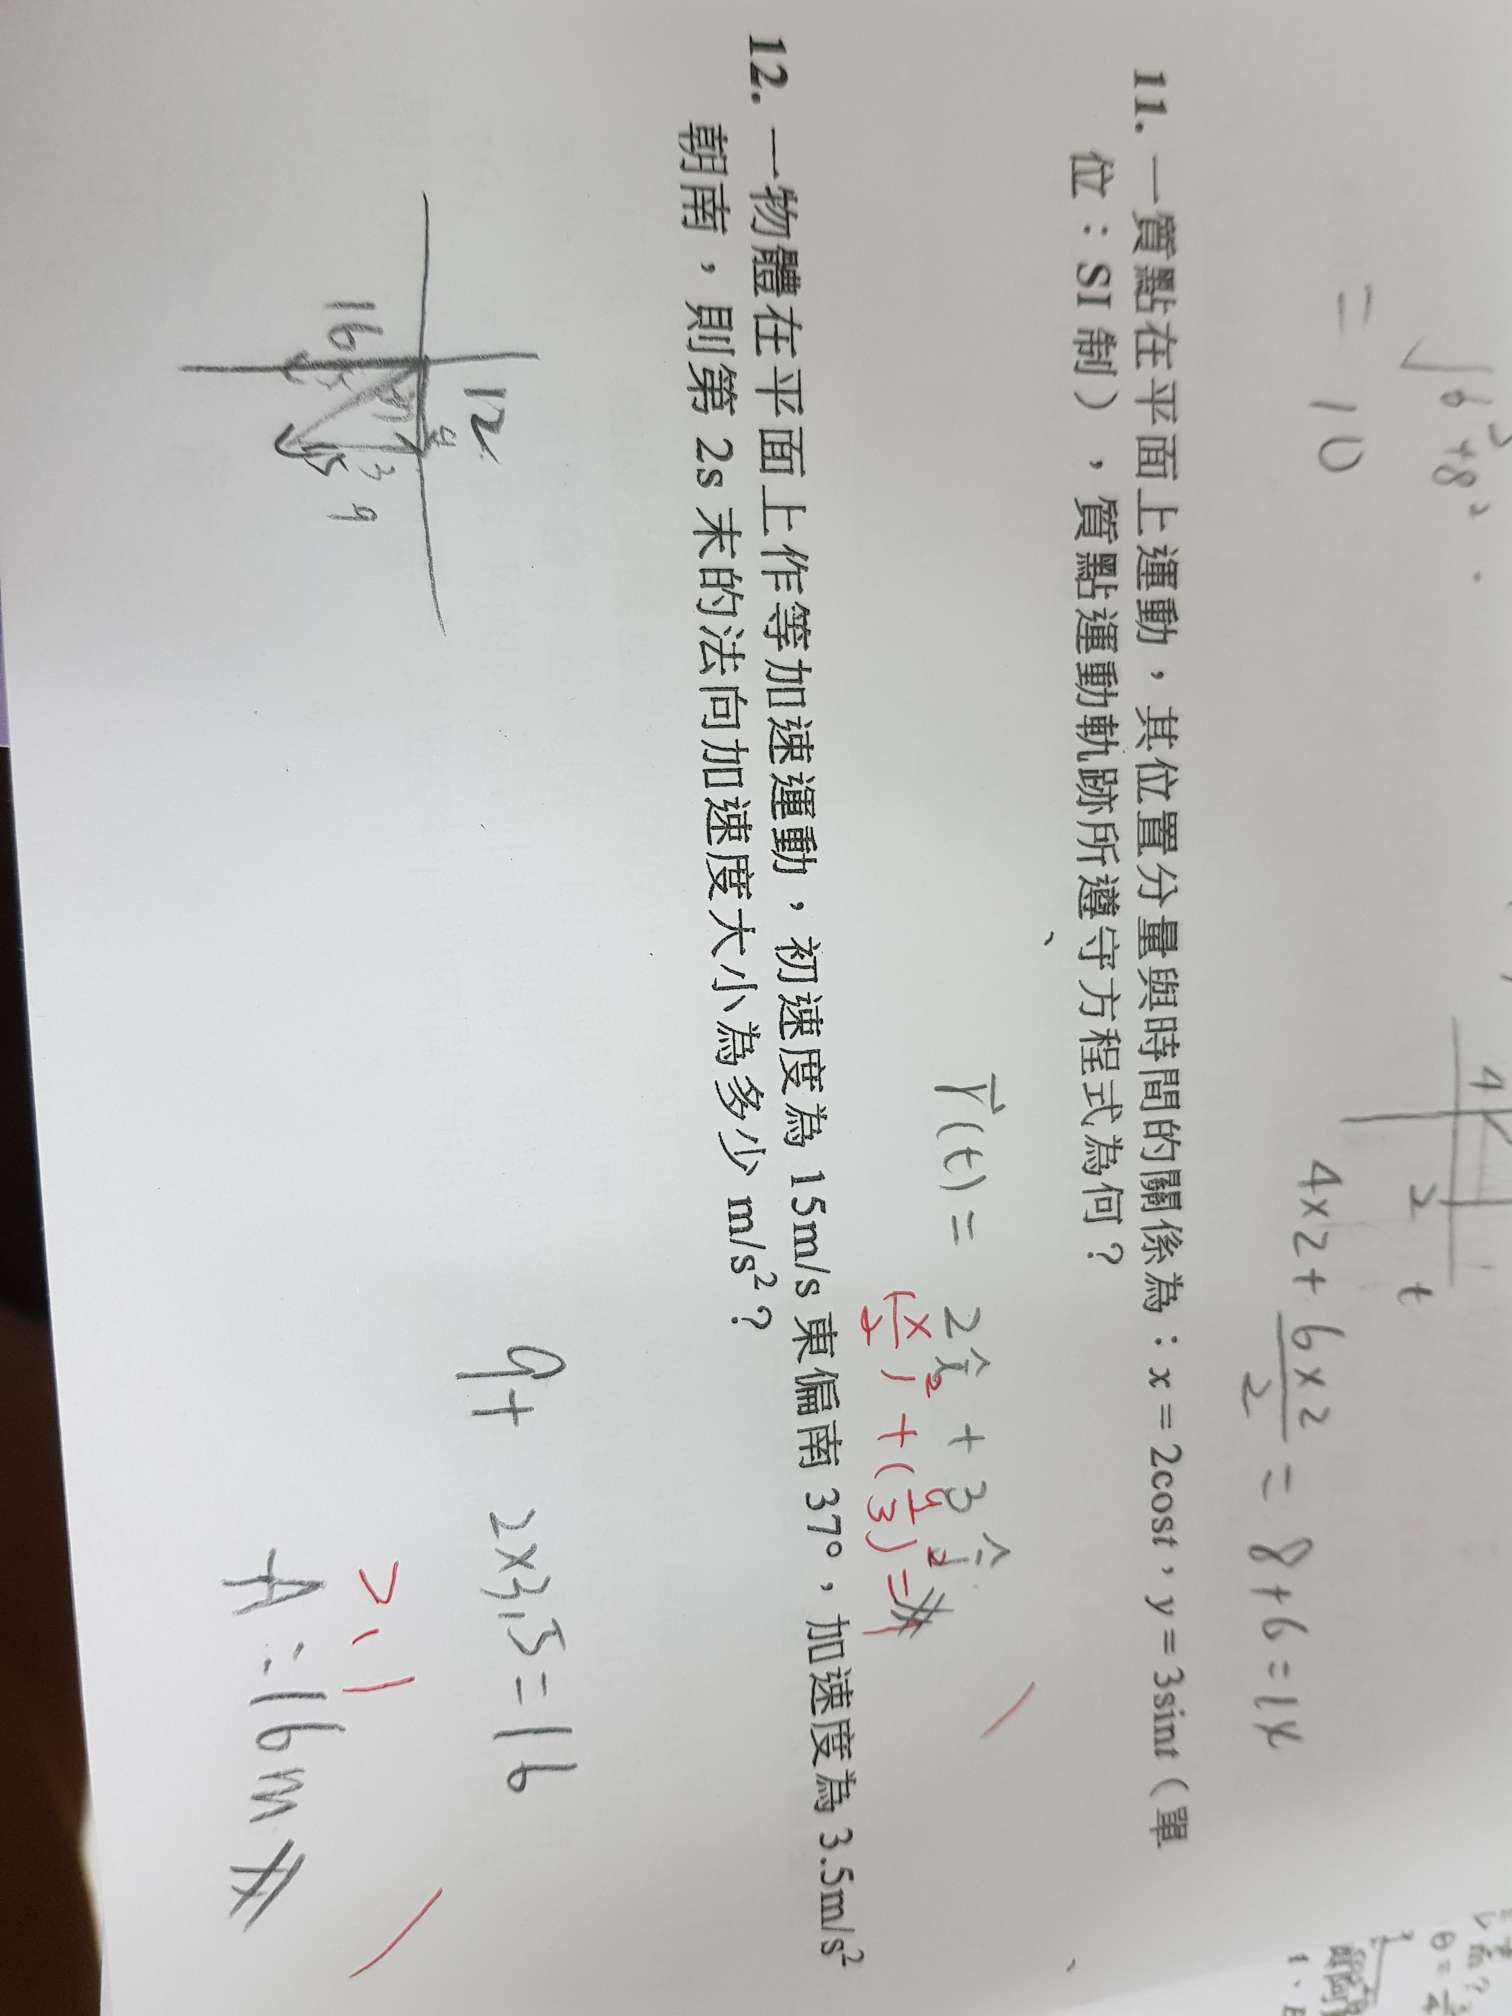 √6²+8²
= 10
4
2
t
4×2+ 6×2/2 = 8+6=14
11. 一質點在平面上運動，其位置分量與時間的關係為：x＝2cost，y＝3sint（單
位：SI 制），質點運動軌跡所遵守方程式為何？
r⃗(t) = 2î + 3ĵ
(x/2)² + (y/3)² = 1
12. 一物體在平面上作等加速運動，初速度為 15m/s 東偏南 37°，加速度為 3.5m/s²
朝南，則第 2s 末的法向加速度大小為多少 m/s²？
12
4
16
5
3
9
9+ 2×3.5=16
2.1
A:16m